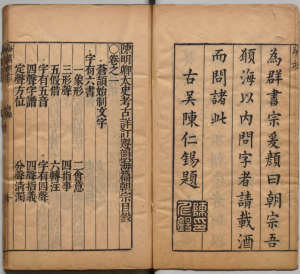 為群書宗爰顏曰朝宗吾
願海以內問字者請載酒
而問諸此
古吳陳仁錫題
陳明卿太史考古詳訂遵韻海篇朝宗目錄
○卷之一
蒼頡始制文字
字有六書
一象形
二會意
三形聲
四指事
五假借
六轉注
字有五音
字有四聲
四聲字譜
四聲指義
定聲方位
分聲清濁